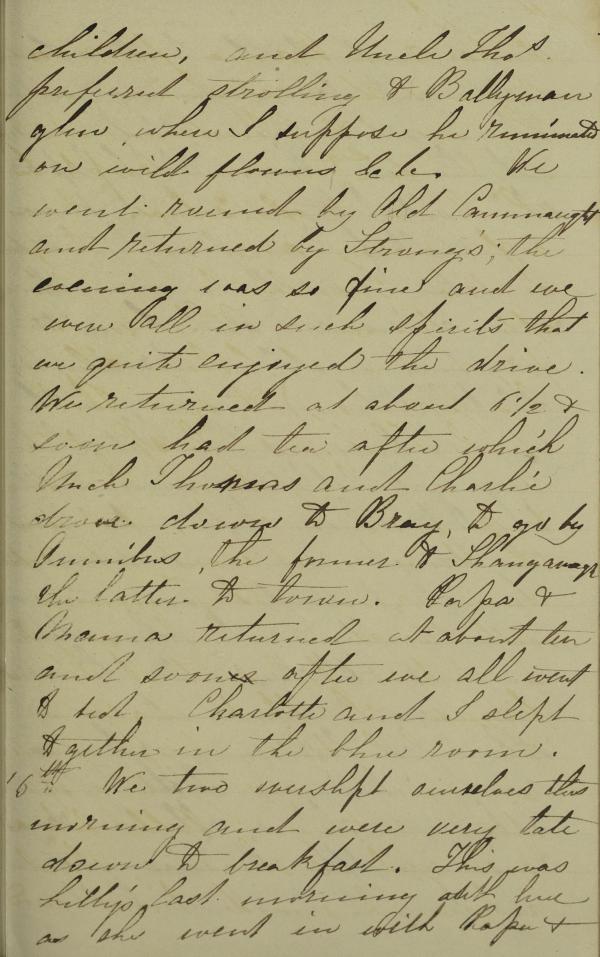 children, and Uncle Thos.
preferred strolling to Ballyman
glen where I suppose he ruminated
on wild flowers &c &c. We
went round by Old Connaught
and returned by Strong's; the
evening was so fine and we
were all in such spirits that
we quite enjoyed the drive.
We returned at about 6 1/2 &
soon had tea after which
Uncle Thomas and Charlie
drove down to Bray, to go by
Omnibus, the former to Shanganagh
the latter to town. Papa &
Mama returned at about ten
and soon after we all went
to bed. Charlotte and I slept
together in the blue room.
16th We two overslept ourselves this
morning and were very late
down to breakfast. This was
Lilly's last morning here
as she went in with Papa &